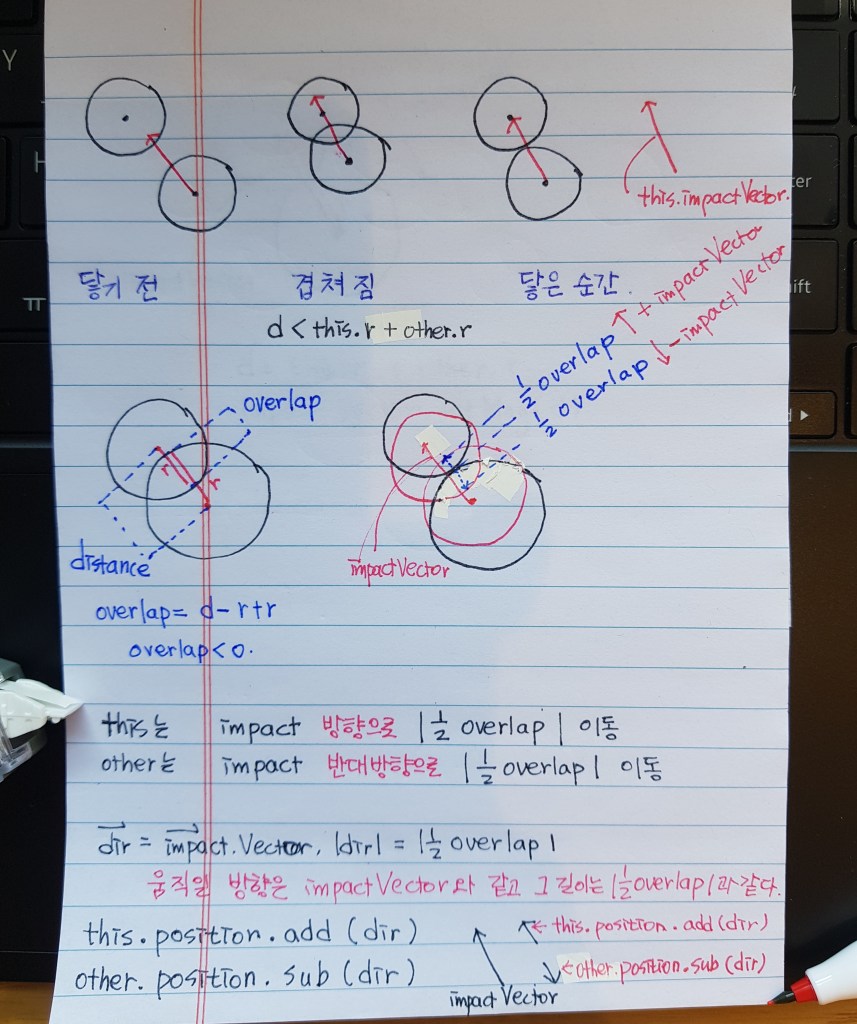 this.impactVector.
닿기 전
겹쳐 짐
닿은 순간.
d < this.r + other.r
½ overlap ↑ + impactVector
½ overlap ↓ - impactVector
overlap
r
r
distance
impactVector
overlap = d - r + r
overlap < 0.
this는 impact 방향으로 |½ overlap| 이동
other는 impact 반대방향으로 |½ overlap| 이동
dir = impact.Vector, |dir| = |½ overlap|
움직일 방향은 impactVector와 같고 그 길이는 |½ overlap|과 같다.
this.position.add (dir)
← this.position.add (dir)
other.position.sub (dir)
← other.position.sub (dir)
impactVector
Y
H
ㅠ
ter
ift